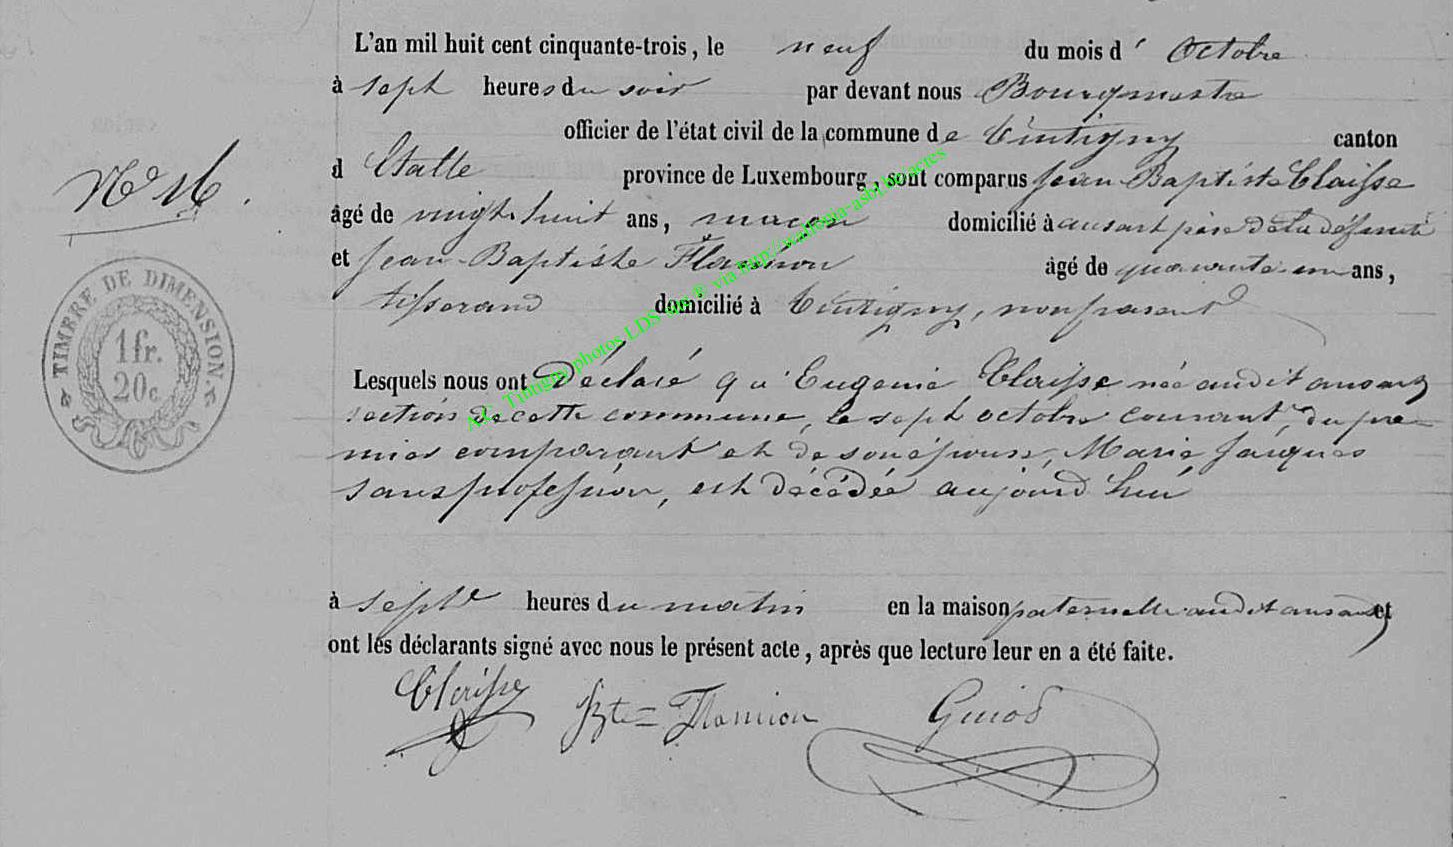 L'an mil huit cent cinquante-trois, le neuf du mois d' Octobre
à sept heures du soir par devant nous Bourgmestre
officier de l'état civil de la commune de Tintigny canton
d Etalle province de Luxembourg, sont comparus Jean Baptiste Claisse
âgé de vingt huit ans, maçon domicilié à ansart père de la défunte
et Jean-Baptiste Flamion âgé de quarante un ans,
tisserand domicilié à Tintigny, non parent
Lesquels nous ont Déclaré qu'Eugenie Claisse née audit ansart
section de cette commune, le sept octobre courant, du pre-
mier comparant et de son épouse, Marie Jacques
sans profession, est décédée aujourd'hui
à sept heures du matin en la maison paternelle audit ansart et
ont les déclarants signé avec nous le présent acte, après que lecture leur en a été faite.
Claisse JBte= Flamion Guiot
No
TIMBRE DE DIMENSION.
1 fr.
20 c
Tintigny photos LDS via http://wallonia-asbl.be/actes